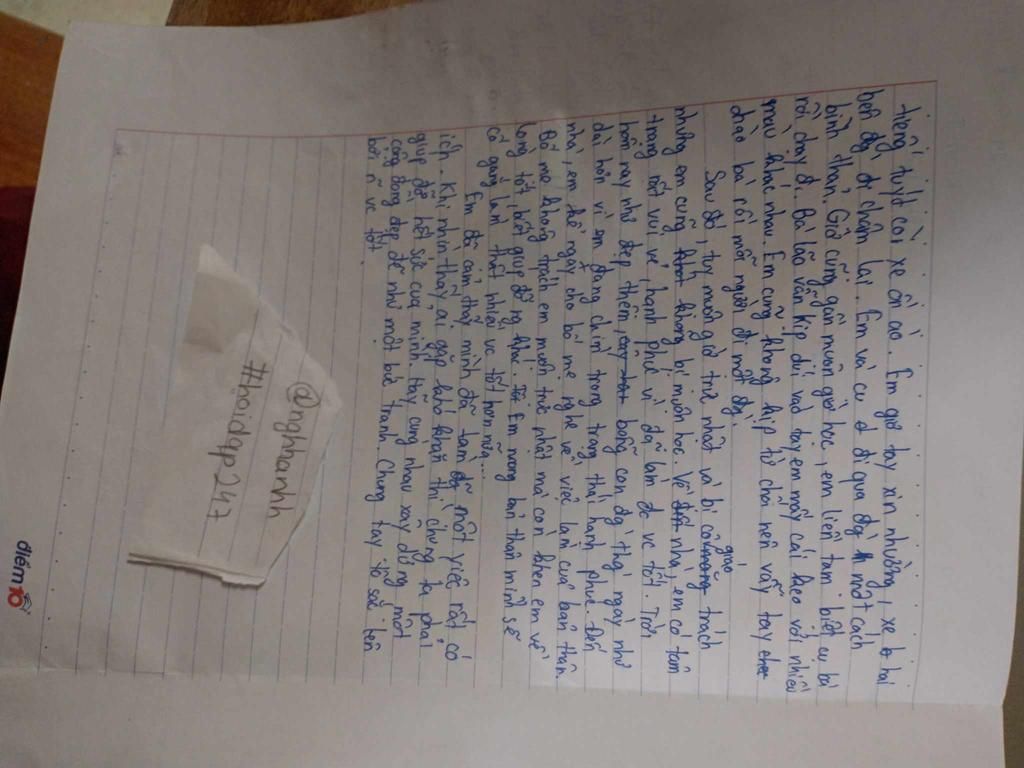 tiếng tuýt còi xe ồn ào. Em giơ tay xin nhường, xe ở hai
bên đg đi chậm lại. Em và cụ đi qua đg một cách
bình thản. Giờ cũng gần muộn giờ học, em liền tạm biệt cụ bà
rồi chạy đi. Bà lão vẫn kịp dúi vào tay em mấy cái kẹo với nhiều
màu khác nhau. Em cũng không kịp từ chối nên vẫy tay
chào bà rồi mỗi người đi một đg.
Sau đó, tuy muộn giờ trực nhật và bị cô giáo trách
nhưng em cũng không bị muộn học. Về nhà, em có tâm
trạng rất vui vẻ, hạnh phúc vì đã làm đc vc tốt. Trời
hôm nay như đẹp thêm, bỗng con đg thg ngày như
dài hơn vì em đang chìm trong trạng thái hạnh phúc. Đến
nhà, em kể ngay cho bố mẹ nghe về việc làm của bản thân.
Bố mẹ không trách em muộn trực nhật mà còn khen em về
lòng tốt, biết giúp đỡ ng khác. Em mong bản thân mình sẽ
cố gắng làm thật nhiều vc tốt hơn nữa...
Em đã cảm thấy mình đã làm một việc rất có
ích. Khi nhìn thấy ai gặp khó khăn thì chúng ta phải
giúp đỡ hết sức của mình. Hãy cùng nhau xây dựng một
cộng đồng đẹp đẽ như một bức tranh. Chung tay tô sắc bên
bởi n vc tốt
@nghhanhh
#hoidap247
điểm 10